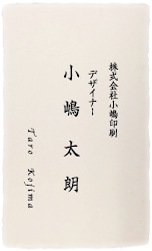 株式会社小嶋印刷
デザイナー
小嶋太朗
Taro Kojima